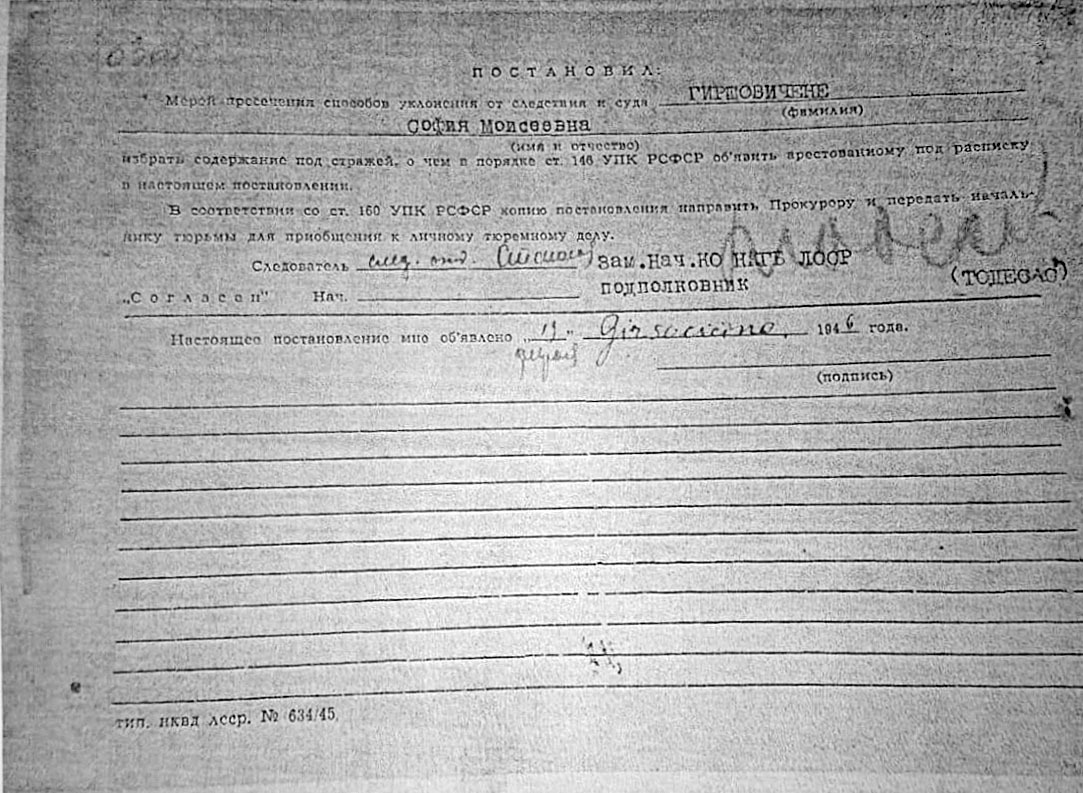 ПОСТАНОВИЛ:
Мерой пресечения способов уклонения от следствия и суда ГИРШОВИЧЕНЕ
(фамилия)
СОФИЯ Моисеевна
(имя и отчество)
избрать содержание под стражей, о чем в порядке ст. 146 УПК РСФСР об'явить арестованному под расписку
в настоящем постановлении.
В соответствии со ст. 160 УПК РСФСР копию постановления направить Прокурору и передать началь-
нику тюрьмы для приобщения к личному тюремному делу.
Следователь след. ЗАМ.НАЧ.КО
ПОДПОЛКОВНИК
„Согласен" Нач.
Настоящее постановление мне об'явлено 1946 года.
(подпись)
тип. нквд лсср. № 634/45.